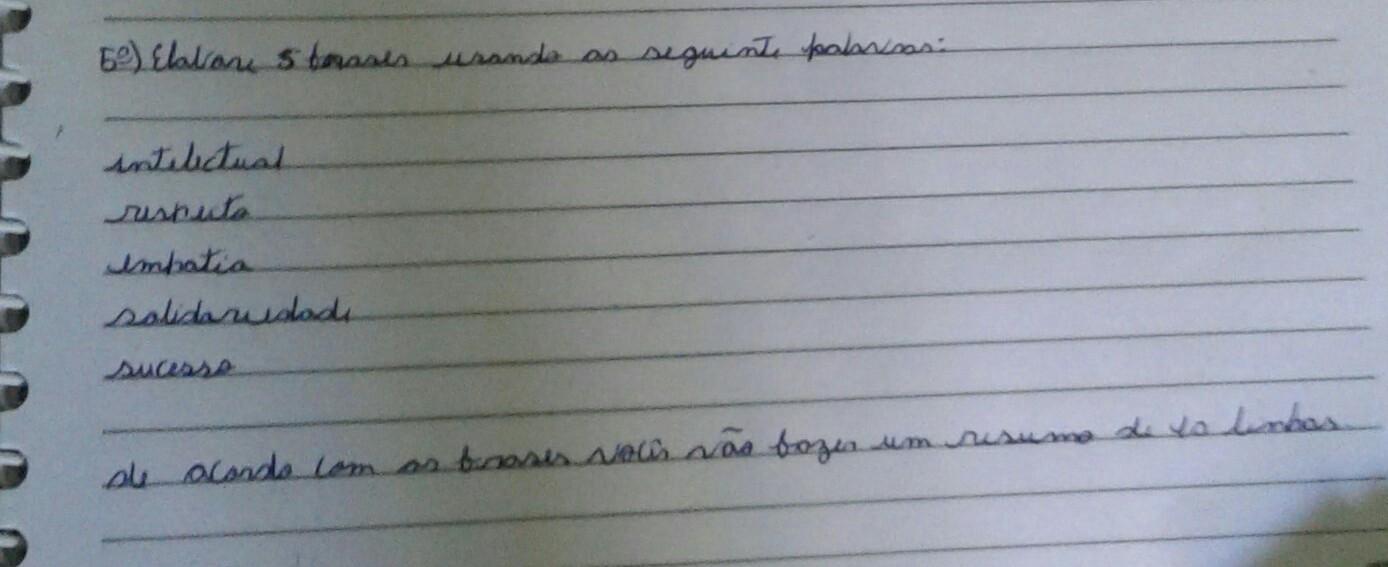 5º) Elabore 5 frases usando as seguinte palavras:
intelectual
respeito
empatia
solidariedade
sucesso
de acordo com as frases vocês vão fazer um resumo de 10 linhas